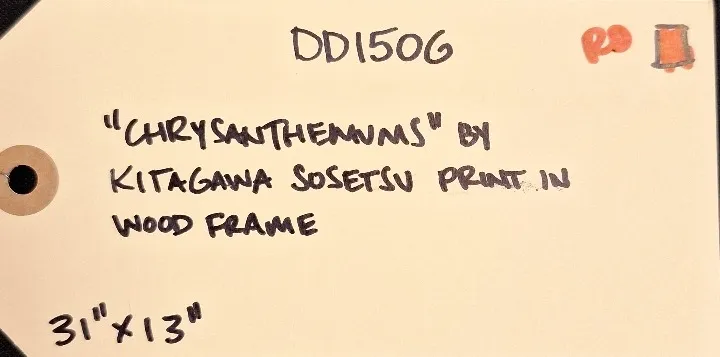 DD1506
RO
"CHRYSANTHEMUMS" BY
KITAGAWA SOSETSU PRINT IN
WOOD FRAME
31" x 13"